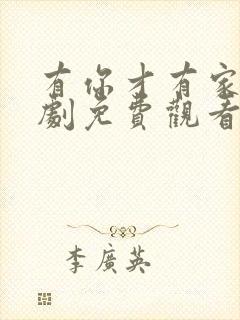 有你才有家
劇免費觀看
李廣英